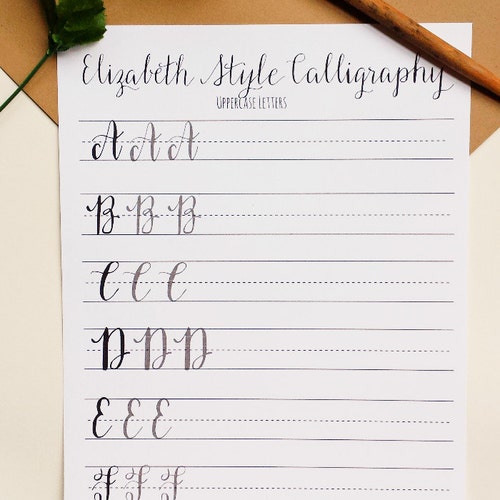 Elizabeth Style Calligraphy
UpperCase Letters
A A A
B B B
C C C
D D D
E E E
F F F